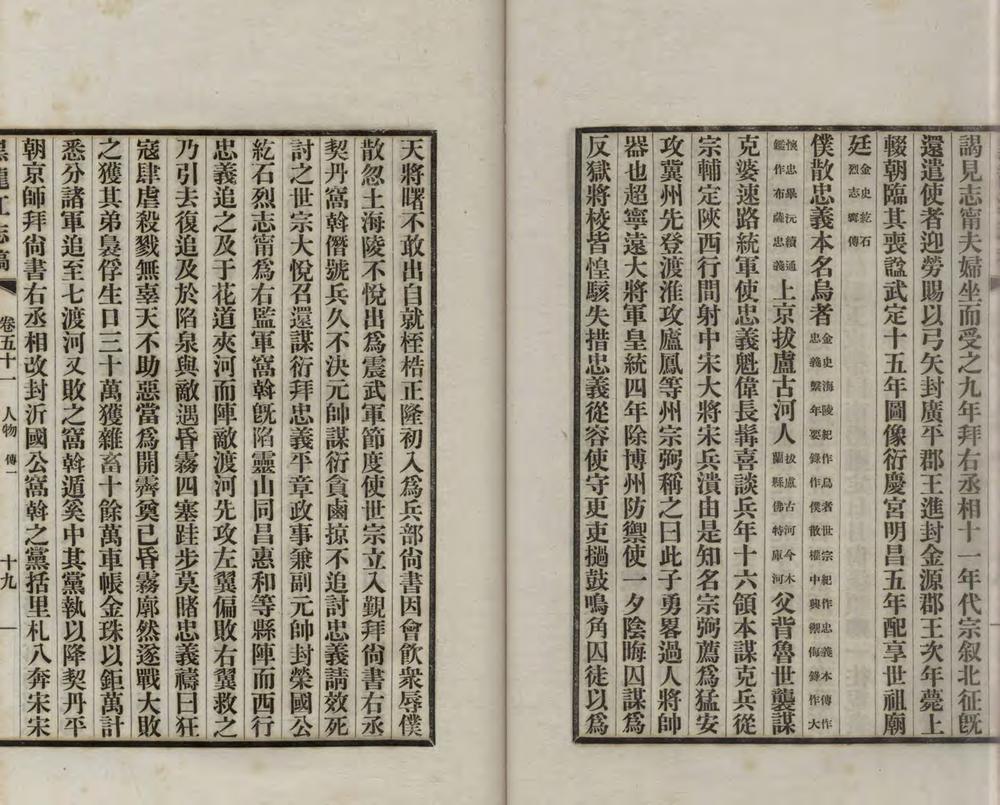 謁見志甯夫婦坐而受之九年拜右丞相十一年代宗叙北征旣
還遣使者迎勞賜以弓矢封廣平郡王進封金源郡王次年薨上
輟朝臨其喪諡武定十五年圖像衍慶宮明昌五年配享世祖廟
廷金史紇石烈志甯傳
僕散忠義本名烏者金史海陵紀作烏者世宗紀作忠義本傳作忠義繫年要錄作僕散權中興禦侮錄作大懷忠畢沅續通鑑作布薩忠義上京拔盧古河人拔盧古河今木蘭縣佛特庫河父背魯世襲謀
克婆速路統軍使忠義魁偉長髯喜談兵年十六領本謀克兵從
宗輔定陝西行間射中宋大將宋兵潰由是知名宗弼薦爲猛安
攻冀州先登渡淮攻廬鳳等州宗弼稱之曰此子勇畧過人將帥
器也超寧遠大將軍皇統四年除博州防禦使一夕陰晦囚謀爲
反獄將校皆惶駭失措忠義從容使守更吏撾鼓鳴角囚徒以爲
天將曙不敢出自就桎梏正隆初入爲兵部尙書因會飮衆辱僕
散忽土海陵不悅出爲震武軍節度使世宗立入覲拜尙書右丞
契丹窩斡僭號兵久不決元帥謀衍貪鹵掠不追討忠義請效死
討之世宗大悅召還謀衍拜忠義平章政事兼副元帥封榮國公
紇石烈志甯爲右監軍窩斡旣陷靈山同昌惠和等縣陣而西行
忠義追之及于花道夾河而陣敵渡河先攻左翼偏敗右翼救之
乃引去復追及於陷泉與敵遇昏霧四塞跬步莫睹忠義禱曰狂
寇肆虐殺戮無辜天不助惡當爲開霽奠已昏霧廓然遂戰大敗
之獲其弟裊俘生口三十萬獲雜畜十餘萬車帳金珠以鉅萬計
悉分諸軍追至七渡河又敗之窩斡遁奚中其黨執以降契丹平
朝京師拜尙書右丞相改封沂國公窩斡之黨括里札八奔宋宋
黑龍江志稿 卷五十一 人物 傳一 十九